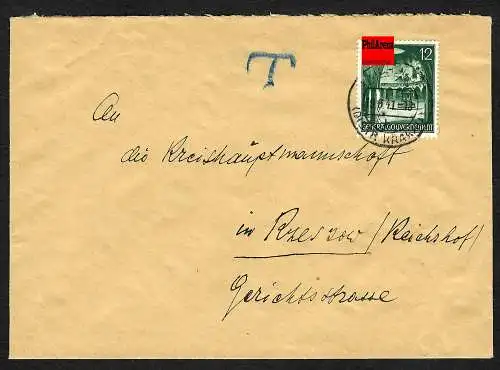 T
PhilArena
12
GENERALGOUVERNEMENT
An
die Kreishauptmannschaft
in Rzeszow (Reichshof)
Gerichtsstrasse